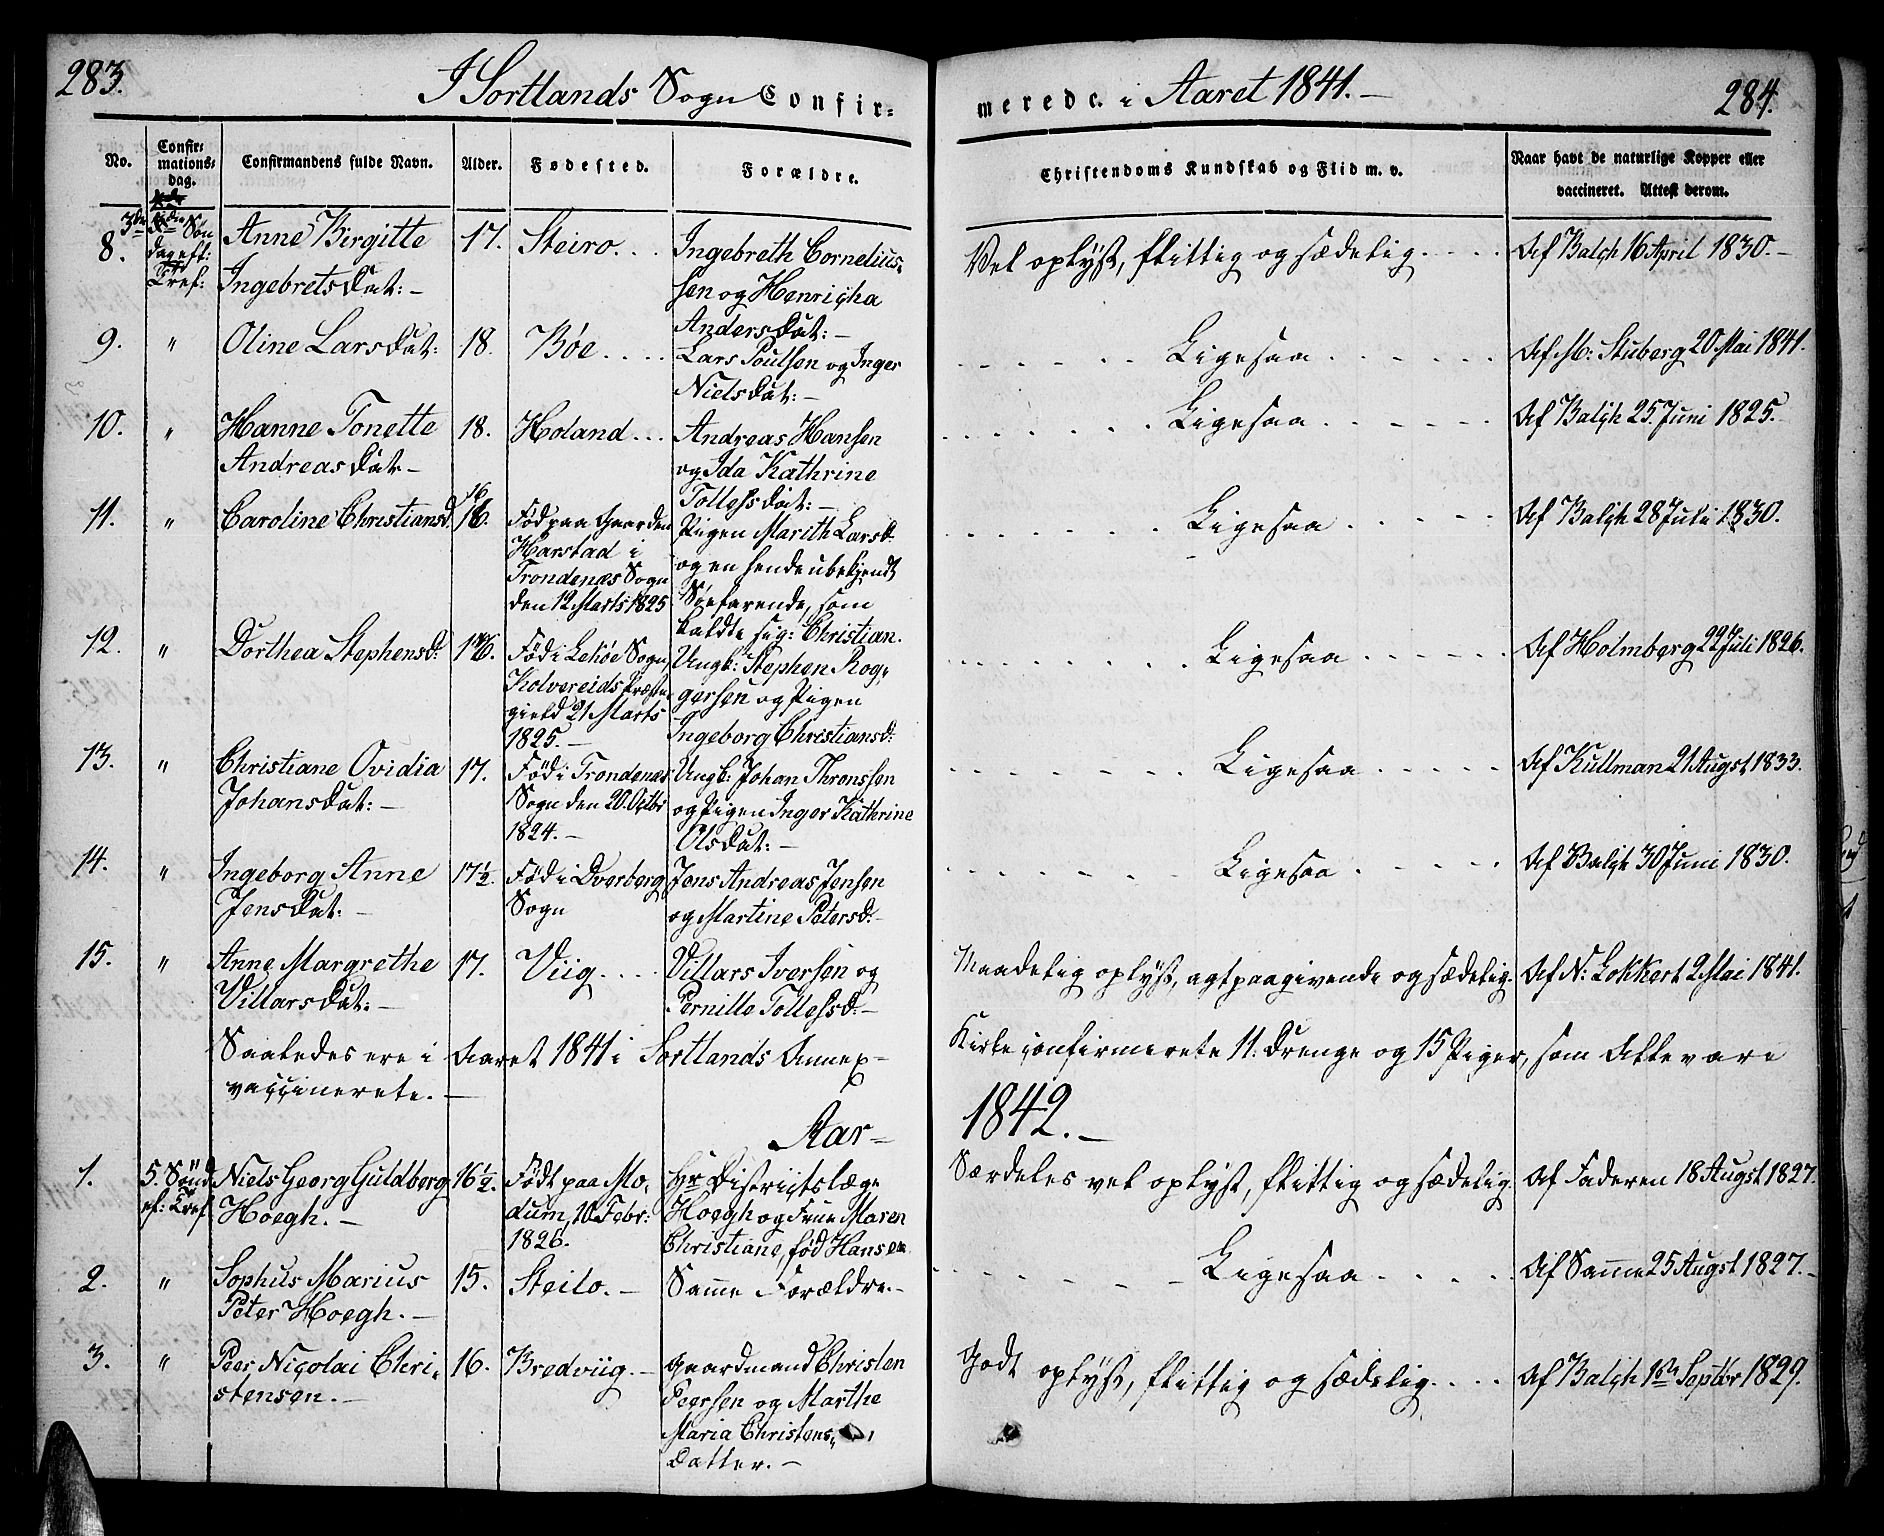 283.
I Sortlands Sogn Confir=
merede. i Aaret 1841.—
284.
No.
Confir=
mations=
dag.
Confirmandens fulde Navn.
Alder.
Fødested.
Forældre.
Christendoms Kundskab og Flid m. v.
Naar havt de naturlige Kopper eller
vaccineret. Attest derom.
8.
3die Søn
dag eft:
Tref:
Anne Birgitte
Ingebretsdat:—
17.
Steiro...
Ingebreth Cornelius-
sen og Henricha
Andersdat:—
Vel oplyst, flittig og sædelig....
Af Balch 16 April 1830.—
9.
"
Oline Larsdat:
18.
Bøe....
Lars Poulsen og Inger
Nielsdat:—
Ligesaa
Af M: Stuberg 20 Mai 1841.
10.
"
Hanne Tonette
Andreasdat—
18.
Holand...
Andreas Hansen
og Ida Kathrine
Tollefsdat:—
Ligesaa
Af Balch 25. Juni 1825.
11.
"
Caroline Christiansd.
16
16.
Fød paa Gaarden
Harstad i
Trondenæs Sogn
den 12 Marts 1825
Pigen Marith Larsd.
og en hende ubekjendt
Søefarende, som
kaldte sig: Christian.
Ligesaa
Af Balch 28 Juli 1830.
12.
"
Dorthea Stephensd:
16.
Fød i Lekøe Sogn
Kolvereids Præste-
gield 21 Marts
1825.—
Ungk: Stephen Rog-
gersen og Pigen
Ingeborg Christiansd:
Ligesaa
Af Holmberg 22 Juli 1826.
13.
"
Christiane Ovidia
Johansdat:—
17.
Fød i Trondenæs
Sogn den 20. Octbr
1824.—
Ungk: Johan Thronssen
og Pigen Inger Kathrine
Olsdat:—
Ligesaa
Af Kullman 21 Augst 1833.
14.
"
Ingeborg Anne
Jensdat:—
17½.
Fød i Dverberg
Sogn
Jens Andreas Jensen
og Martine Petersd:—
Ligesaa
Af Balch 30 Juni 1830.
15.
"
Anne Margrethe
Villarsdat:—
17.
Viig....
Villars Iversen og
Pernille Tollefsd:—
Maadelig oplyst, agtpaagivende og sædelig.
Af N: Lokkert 2 Mai 1841.
Saaledes ere i Aaret 1841 i Sortlands Annex-
Kirke confirmerete 11. Drenge og 15 Piger, som Alle vare
vaccinerete.—
Aar—
1842.—
1.
5. Sønd
ef: Tref
Niels Georg Guldberg
Hoegh.—
16½.
Født paa Mo-
dum, 10 Febr:
1826.
Hr Districtslæge
Hoegh og Frue Maren
Christiane, fød Hansen
Særdeles vel oplyst, flittig og sædelig.
Af Faderen 18 Augst 1827.
2.
"
Sophus Marius
Peter Hoegh.—
15.
Steilo.—
Samme Forældre.—
Ligesaa
Af Samme 25 Augst 1827.—
3.
"
Peer Nicolai Chri-
stensen.—
16.
Bredviig.—
Gaardmand Christen
Peersen og Marthe
Maria Christens-
datter.—
Godt oplyst, flittig og sædelig....
Af Balch 1ste Septbr 1829.